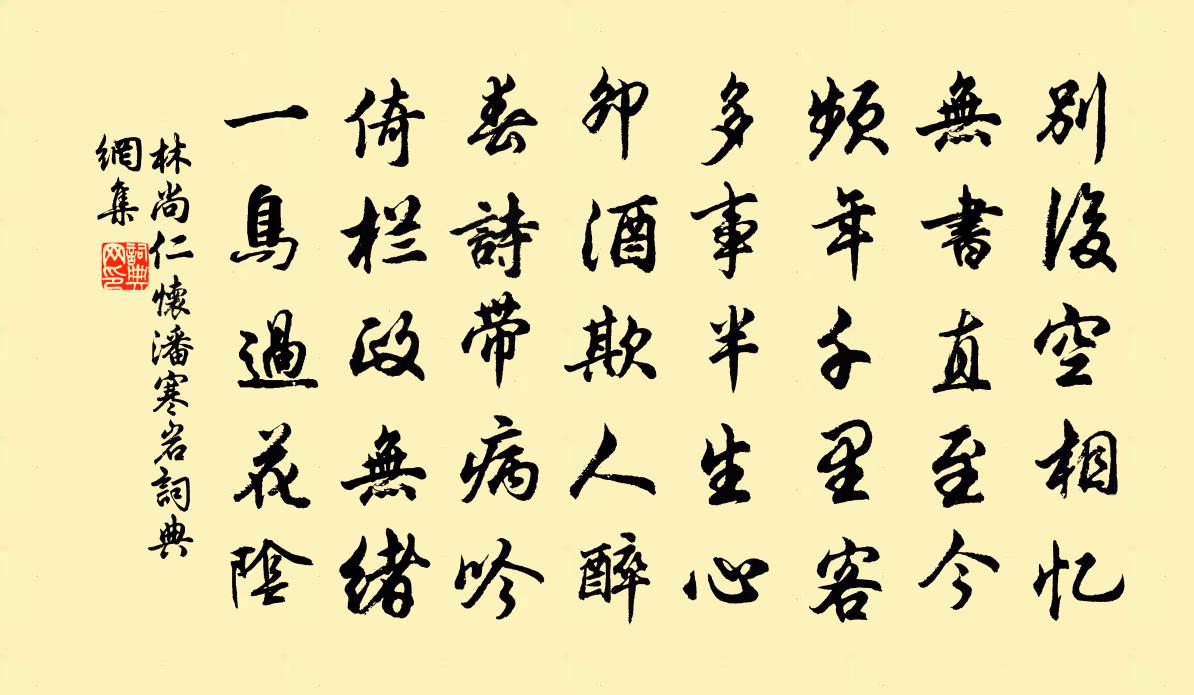 別後空相忆
無書直至今
頻年千里客
多事半生心
卯酒欺人醉
春詩帶病吟
倚栏政無緒
一鳥過花陰
林尚仁懷潘寒岩詞典
網集
詞典
网印